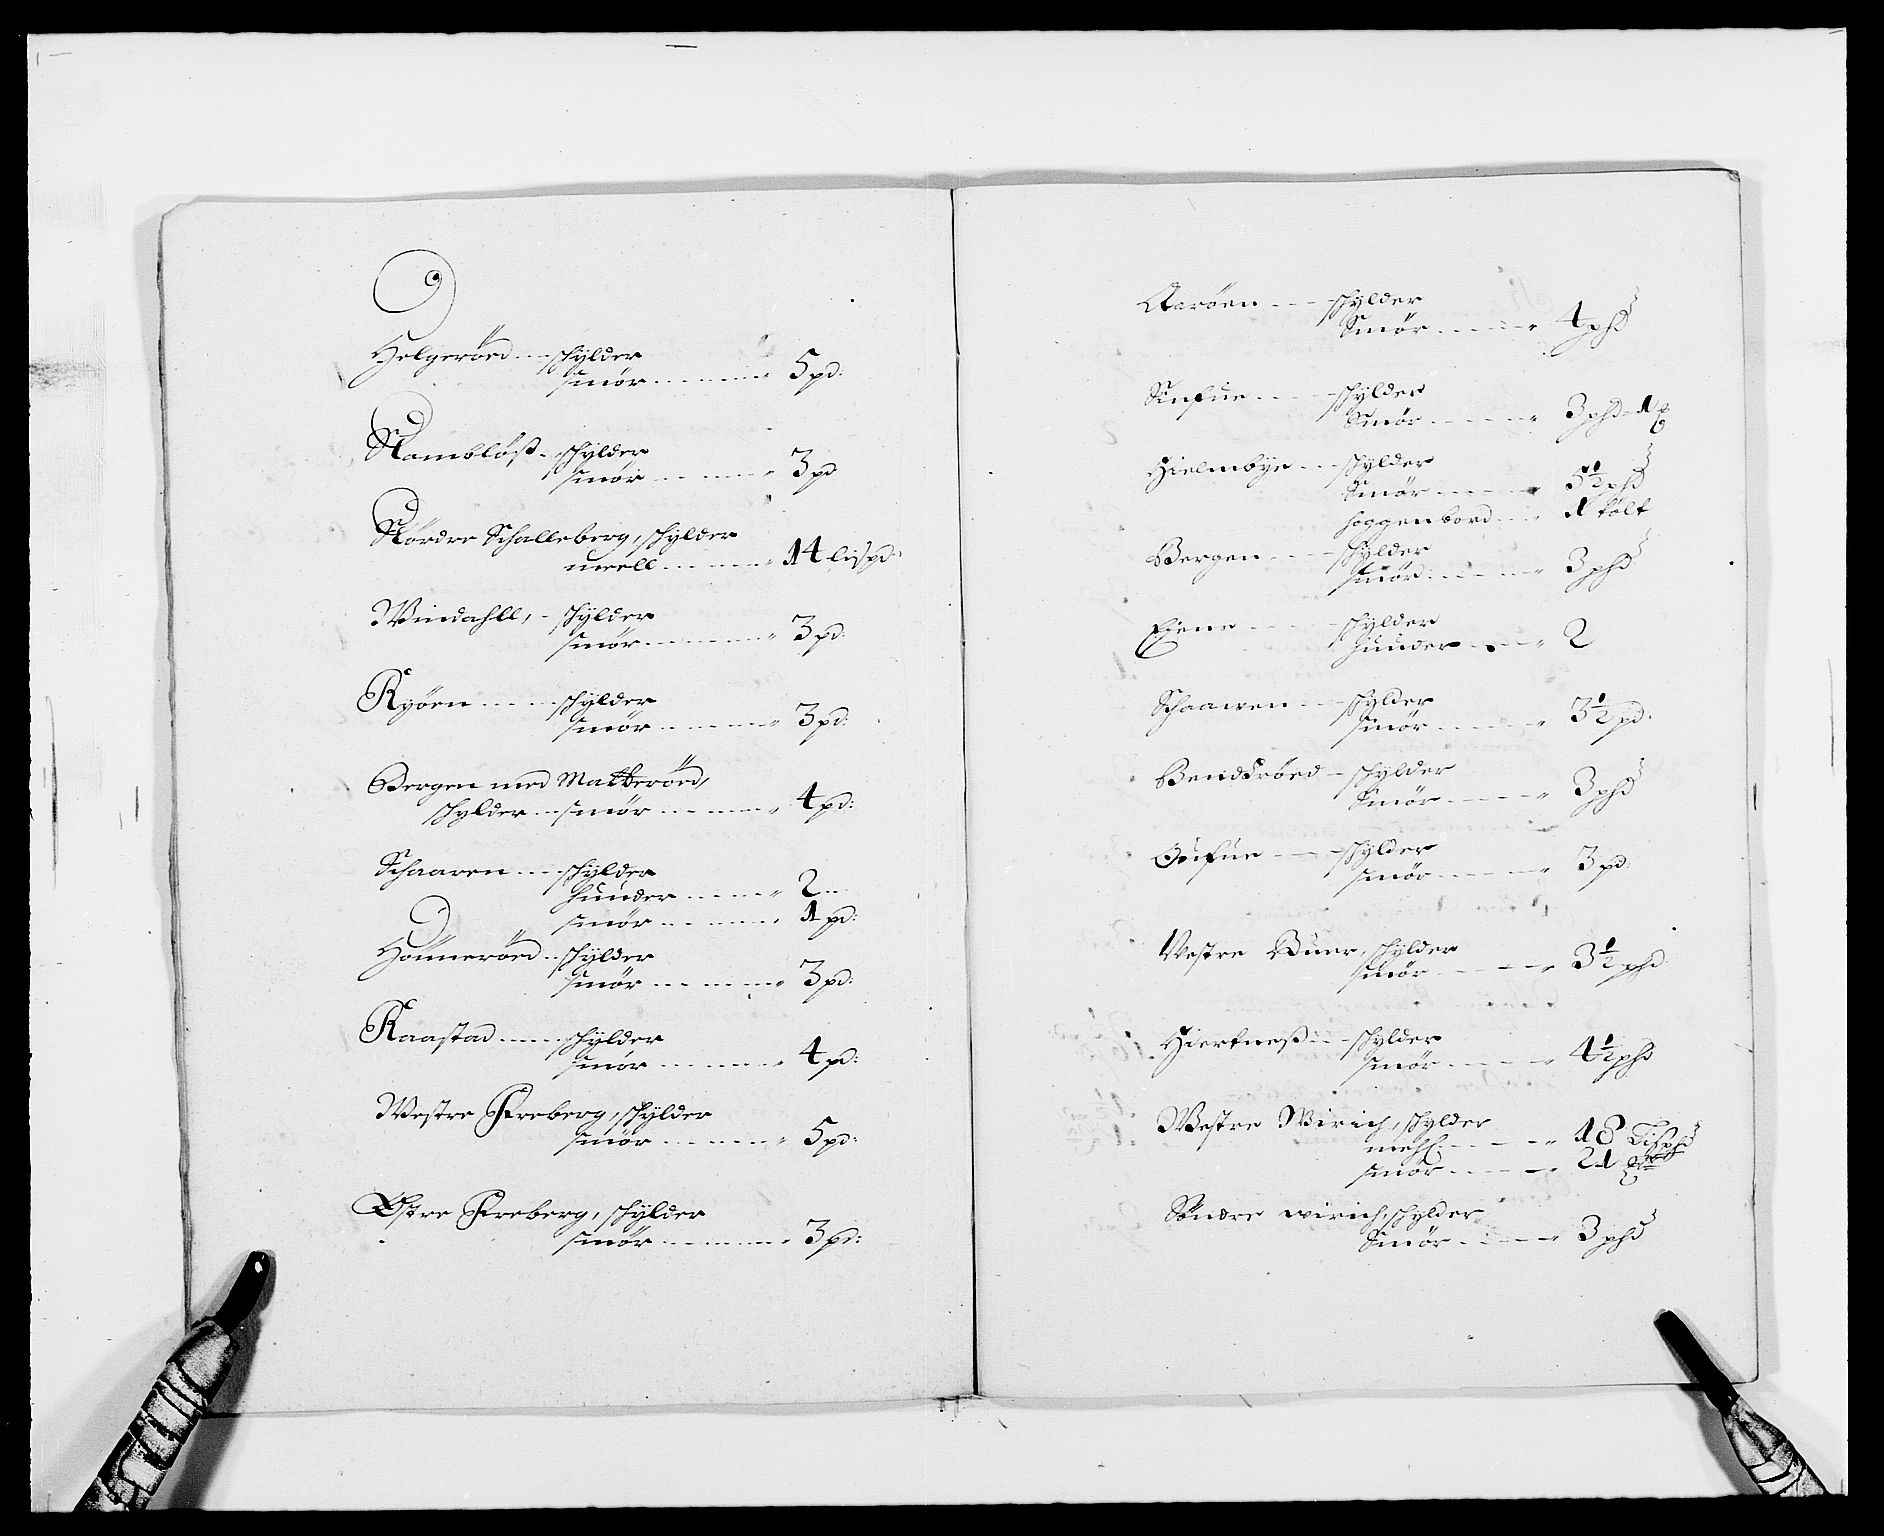 Helgeröed --- schÿlder
smör ------ 5 pd:
Nombløss - schÿlder
smör ------ 3 pd
Nordre Schalleberg, schÿlder
meell ------ 14 lispd:
Windahll, - schÿlder
smör ------ 3 pd:
Ryöen ----- schÿlder
smör ------ 3 pd:
Bergen med Matteröed,
schylder -- smör ------ 4 pd:
Schaaren --- schÿlder
hunder ------ 2 --
smör ------ 1 pd:
Hönneröed -- schÿlder
smör ------ 3 pd:
Raastad ----- schÿlder
smör ------ 4 pd:
Westre Freberg, schÿlder
smör ------ 5 pd:
Østre Freberg, schÿlder
smör ------ 3 pd:
Aaröen --- schÿlder
Smör ----- 4 phd
---- schÿlder
Smör ----- 3 phd - 1
Hielmbye -- schÿlder
Smör ----- 5½ phd
hoggenbord --- 1 tolt
Bergen --- schÿlder
Smör ----- 3 phd
---- schÿlder
hunder ---- 2
Schaawen -- schÿlder
Smör ----- 3½ pd:
Bendtröed - schÿlder
Smör ----- 3 phd
--- schÿlder
smör ----- 3 pd:
Vestre Buer, schÿlder
smör ----- 3½ phd
Hiertness -- schÿlder
smör ----- 4½ phd
Westre Wirich, schÿlder
mehl ----- 18 Lisphd
smör ----- 21
Söndre wirich, schÿlder
Smör ----- 3 phd